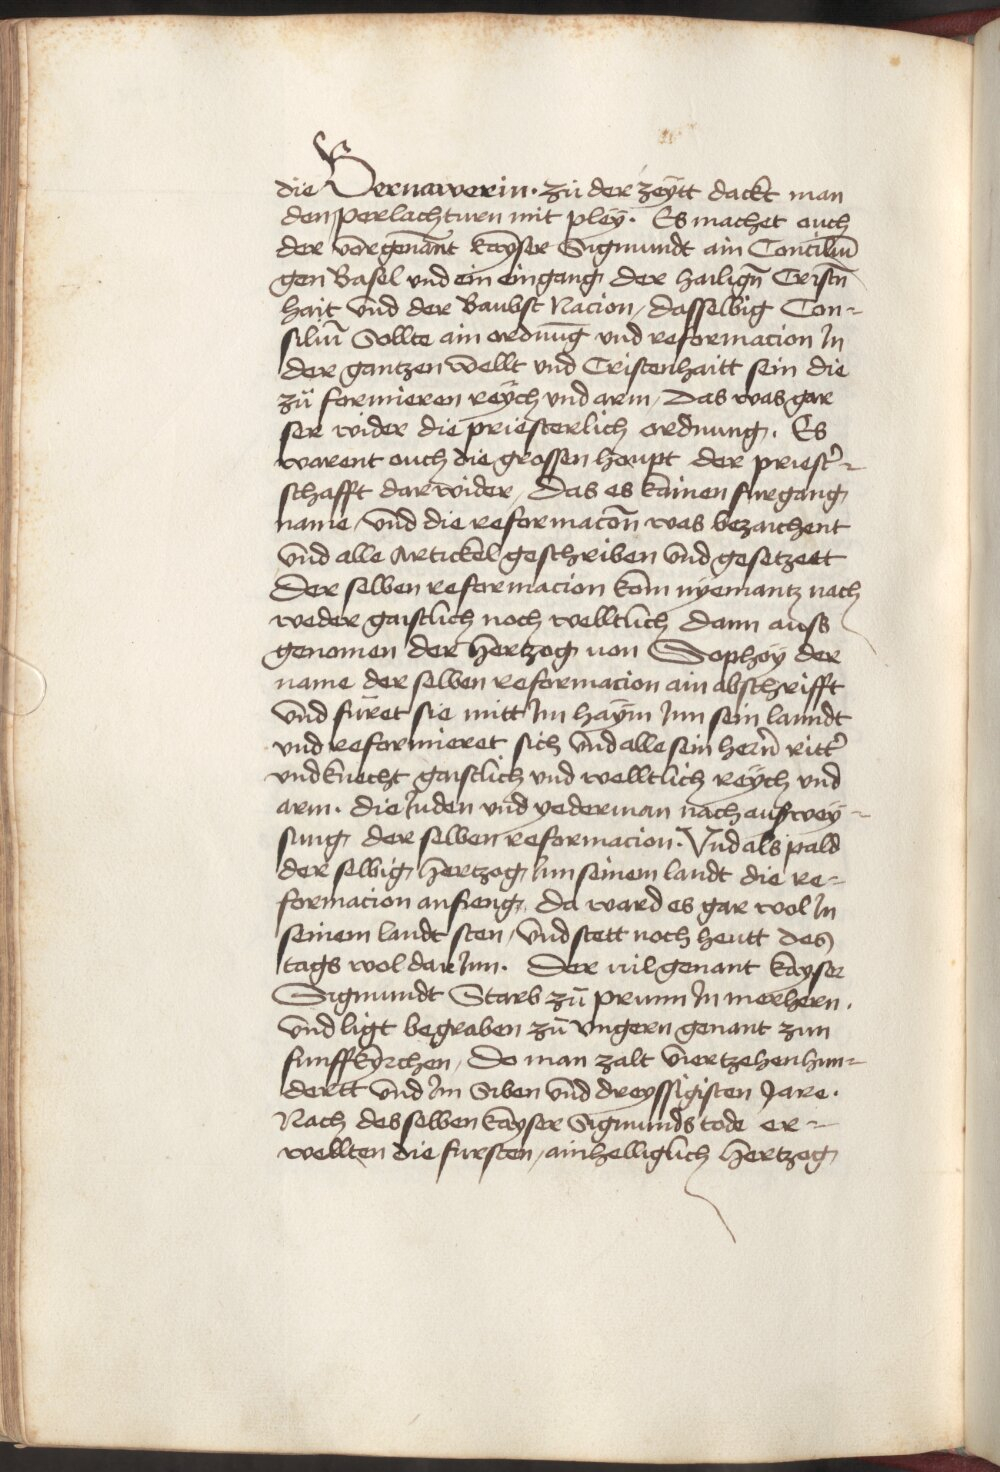 die Bernawerin. zů der zeÿtt dackt man
den perlachturn mit pleÿ. Es machet auch
der vorgenānt kaÿser Sigmundt ain Conciliū
gen Basel vnd ein eingang der hailigñ Cristñ
hait vnd der Baubst Nacion / dasselbig Con-
siliū Sollte ain ordnūg vnd reformacion In
der gantzen wellt vnd Cristenhaitt sein die
zů formieren reÿch vnd arm / das was gar
ser wider die priesterlich ordnung. Es
warent auch die grossen houpt der priest̾-
schafft darwider / Das es kainen furgang
name / vnd die reformacōn was bezaichent
vnd alle Artickel geschriben vnd gesetzett
Der selben reformacion kom nÿemantz nach
weder gaistlich noch welltlich dann auss
genomen der Hertzog von Sophoÿ der
name der selben reformacion ain abschrifft
vnd fůret sie mitt Im haÿm Inn sein lanndt
vnd reformieret sich vnd alle sein herñ ritt̾
vnd knecht gaistlich vnd welltlich reÿch vnd
arm. die Juden vnd yederman nach aufwey-
sung der selben reformacion. Vnd als pald
der selbig Hertzog Inn seinem landt die re-
formacion anfieng, da ward es gar wol In
seinem landt sten / vnd stett noch heutt des
tags wol dar Inn. Der vilgenant kayser
Sigmundt Starb zů prunn In merhern.
vnd ligt begraben zů vngern genant zun
funffkÿrchen / Do man zalt viertzehenhun-
dertt vnd Im Siben vnd dreyssigisten Jare.
Nach desselben kayser Sigmunds tode er-
wellten die fursten / ainhelliglich Hertzog